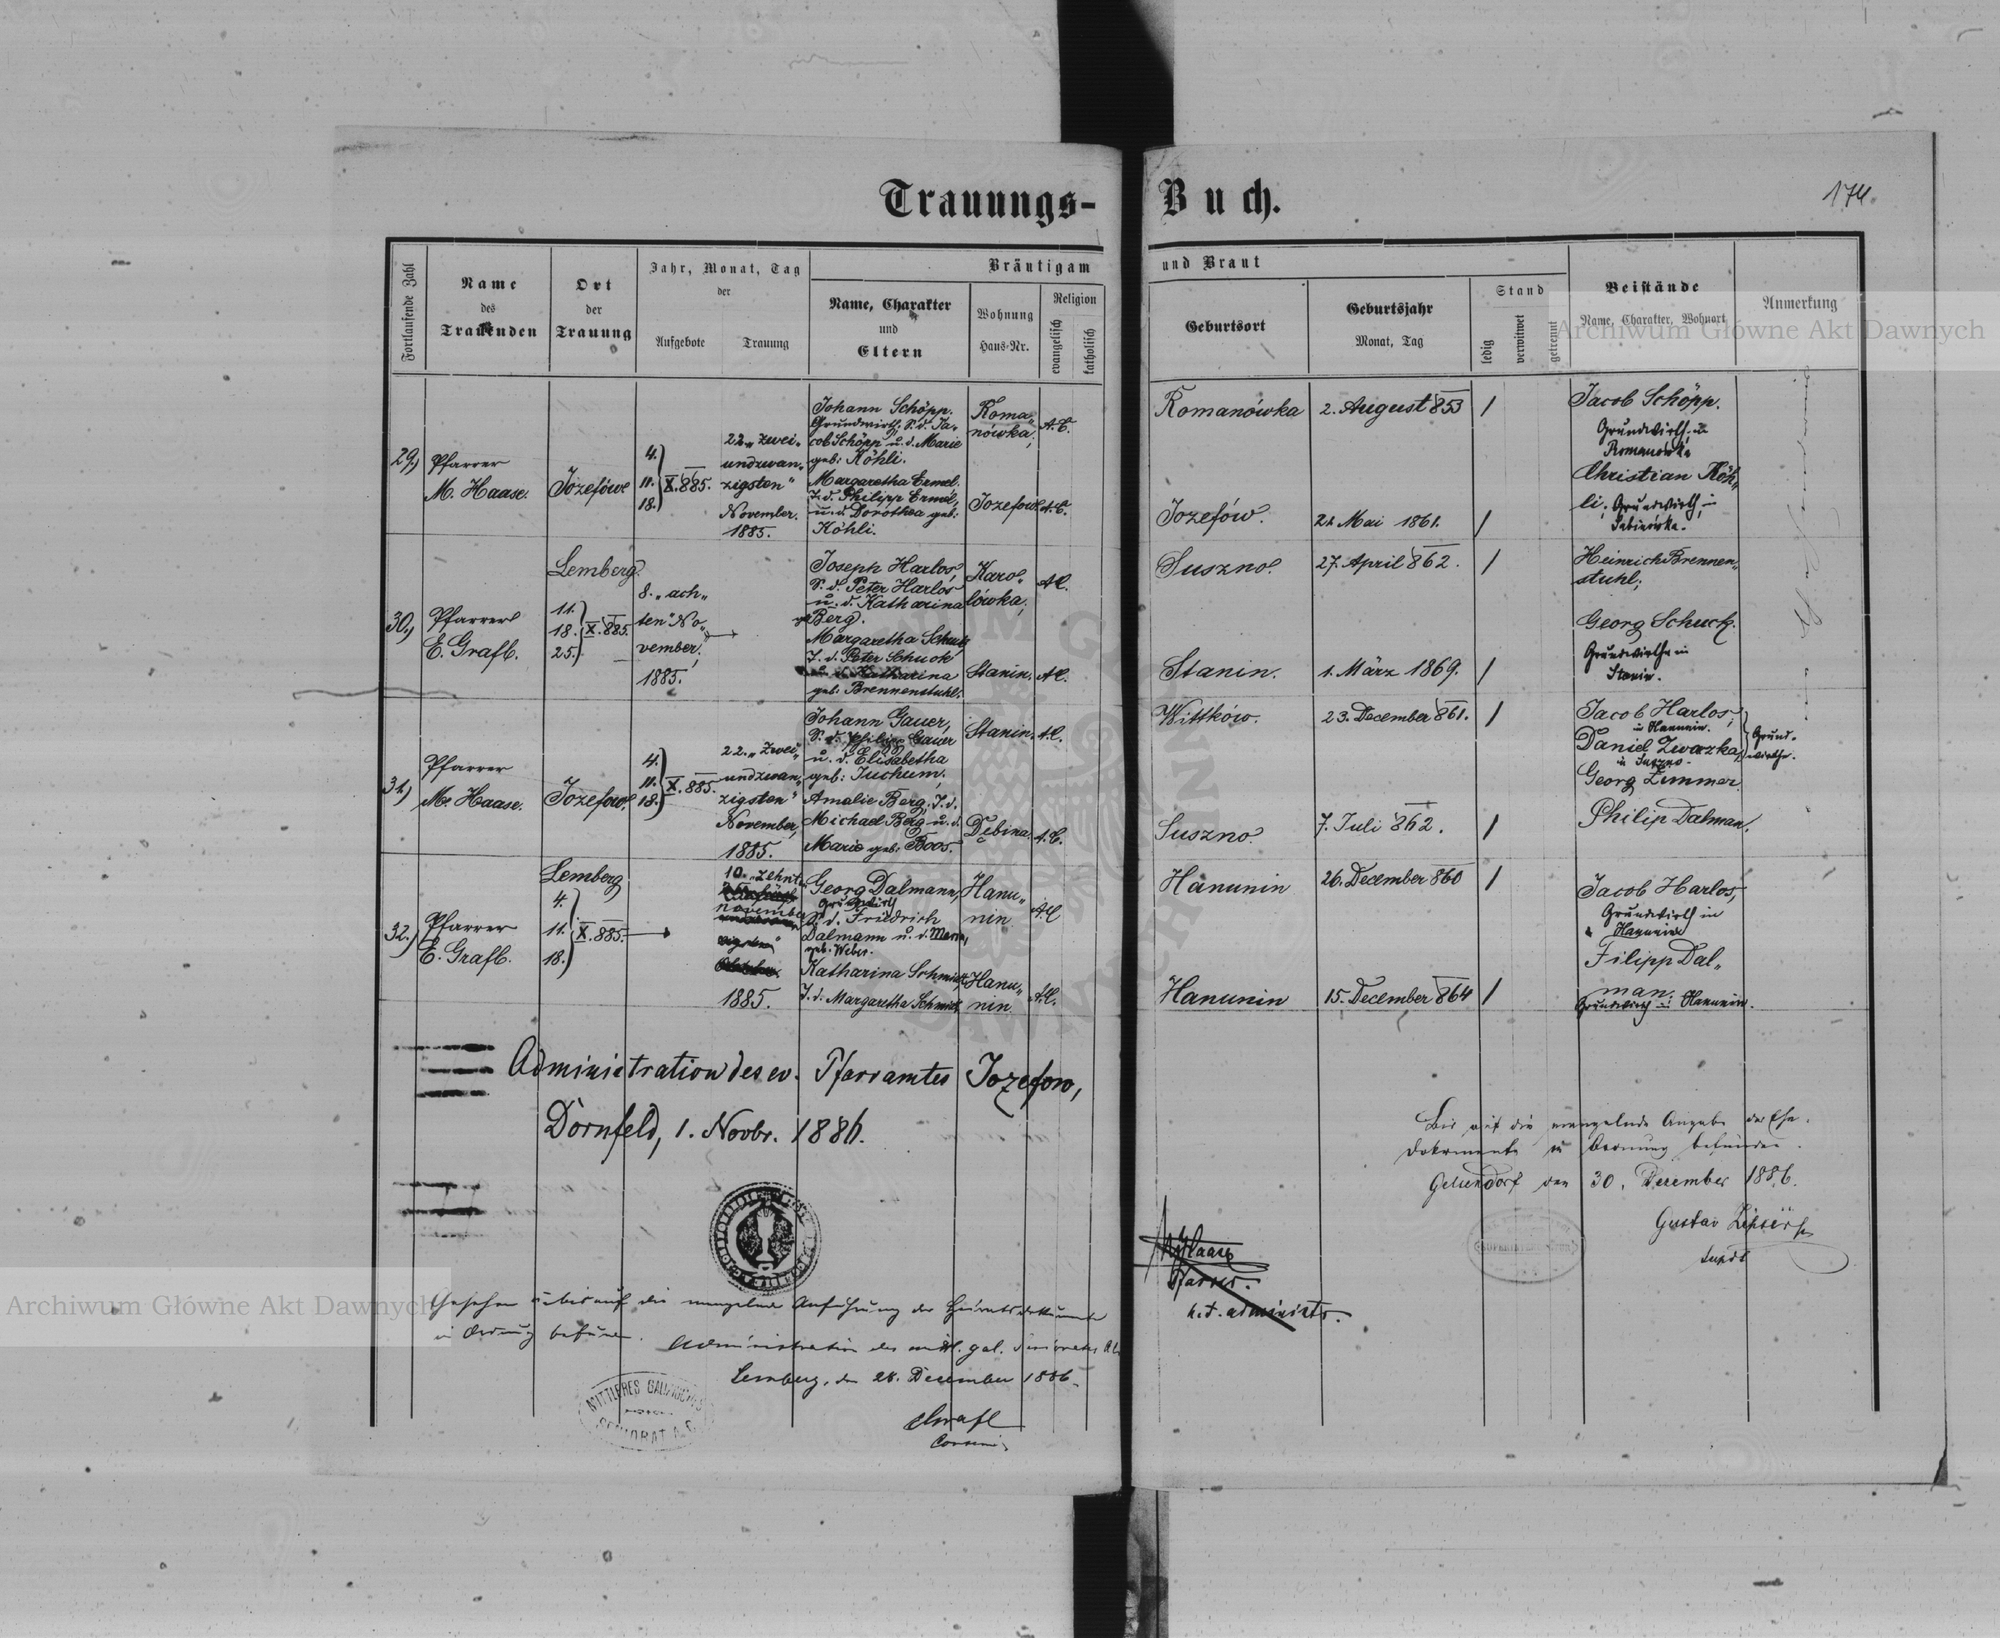 Trauungs-Buch.
174.
Fortlaufende Zahl
Name
des
Trauenden
Ort
der
Trauung
Jahr, Monat, Tag
der
Aufgebote
Trauung
Bräutigam und Braut
Name, Charakter
und
Eltern
Wohnung
Haus-Nr.
Religion
evangelisch
katholisch
Geburtsort
Geburtsjahr
Monat, Tag
Stand
ledig
verwitwet
getrennt
Beistände
Name, Charakter, Wohnort
Anmerkung
Archiwum Główne Akt Dawnych
29.)
Pfarrer
M. Haase.
Józefów
4.
11.
18.
X.885.
22. „zwei-
undzwan-
zigsten"
November.
1885.
Johann Schöpp.
Grundwirth, S. d. Ja-
cob Schöpp u. d. Marie
geb: Köhli.
Margaretha Ermel.
T. d. Philipp Ermel,
u. d. Dorothea geb:
Köhli.
Roma-
nówka,
A.C.
Jozefow
A.C.
Romanówka
2. August 853
/
Jozefów.
21. Mai 1861.
/
Jacob Schöpp.
Grundwirth, in
Romanówka
Christian Köh-
li, Grundwirth, in
Sabinówka.
30.)
Pfarrer
E. Grafl.
Lemberg.
11.
18.
25.
X.885.
8. „ach-
ten" No-
vember,
1885.
Joseph Harlos
S. d. Peter Harlos
u. d. Katharina
Berg.
Margaretha Schuck
T. d. Peter Schuck
u. d. Katharina
geb: Brennenstuhl.
Karo-
lówka,
A.C.
Stanin.
A.C.
Suszno.
27. April 862.
/
Stanin.
1. März 1869.
/
Heinrich Brennen-
stuhl,
Georg Schuck.
Grundwirthe in
Stanin.
31.)
Pfarrer
M. Haase.
Jozefow.
4.
11.
18.
X.885.
22. „zwei-
undzwan-
zigsten"
November,
1885.
Johann Gauer,
S. d. Philipp Gauer
u. d. Elisabetha
geb: Juchum.
Amalie Berg, T. d.
Michael Berg u. d.
Marie geb: Boos.
Stanin.
A.C.
Dębina.
A.C.
Wittków.
23. December 861.
/
Suszno.
7. Juli 862.
/
Jacob Harlos,
in Hanunin.
Daniel Zwarzka,
in Suszno.
Georg Zimmer.
Philip Dalman.
Grund-
wirthe.
32.)
Pfarrer
E. Grafl.
Lemberg
4.
11.
18.
X.885.
10. „zehnt
November
1885.
Georg Dalmann,
Grundwirth
S. d. Friedrich
Dalmann u. d. Maria,
geb. Weber.
Katharina Schmidt
T. d. Margaretha Schmidt
Hanu-
nin
A.C.
Hanu-
nin
A.C.
Hanunin
26. December 860
/
Hanunin
15. December 864
/
Jacob Harlos,
Grundwirth in
Hanunin
Filipp Dal-
man.
Grundwirth in Hanunin.
Administration des ev. Pfarramtes Jozefow,
Dornfeld, 1. Novbr. 1886.
M. Haase
Pfarrer.
h. t. administr.
Bis auf die mangelnde Angabe der Ehe-
dokumente in Ordnung befunden.
Gelsendorf den 30. Dezember 1886.
Gustav
Supdt
SUPERINTENDENTUR
Gesehen u bis auf die mangelnde Anführung der Heiratsdokumente
in Ordnung befunden.
Administration des mittl. gal. Seniorates A.C.
Lemberg, den 28. December 1886.
Grafl
MITTLERES GALIZISCHES
SENIORAT A. C.
Archiwum Główne Akt Dawnych